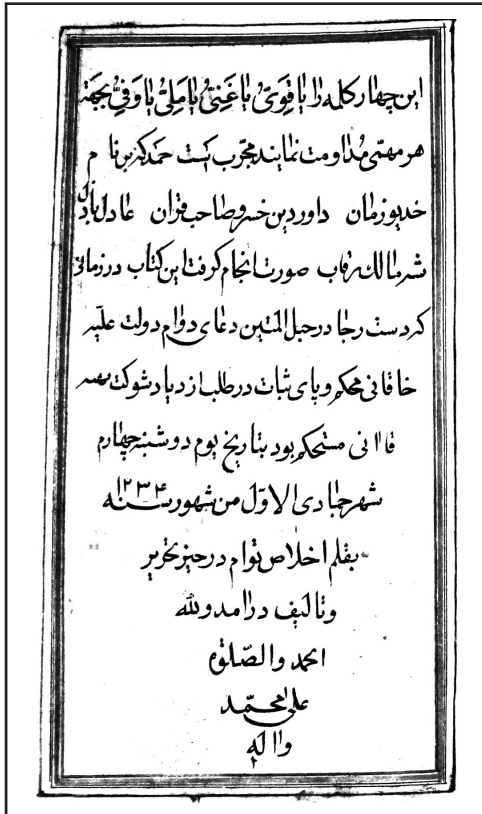 این چهار کلمه را یا قَوِیُّ یا غَنِیُّ یا مَلِیُّ یا وَفِیُّ بجهته
هر مهمّی مُداومت نمایند مجرّب است حمد که بزین نام
خدیو زمان داور دین خسرو صاحب قران عادل باذل
شه مالک رقاب صورت انجام گرفت این کتاب در زمانی
که دست رجا در حبل المتین دعای دوام دولت علیّه
خاقانی محکم و پای ثبات در طلب ازدیاد شوکت بهیه
قاانی مستحکم بود بتاریخ یوم دوشنبه چهارم
شهر جمادی الاوّل من شهور سنه ۱۲۳۴
بقلم اخلاص توام در حیز تحریر
و تالیف درامد ولله
الحمد والصّلوة
علی محمّد
واله